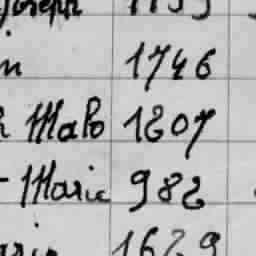 Joseph
n 1746
Malo 1807
Marie 982
1629